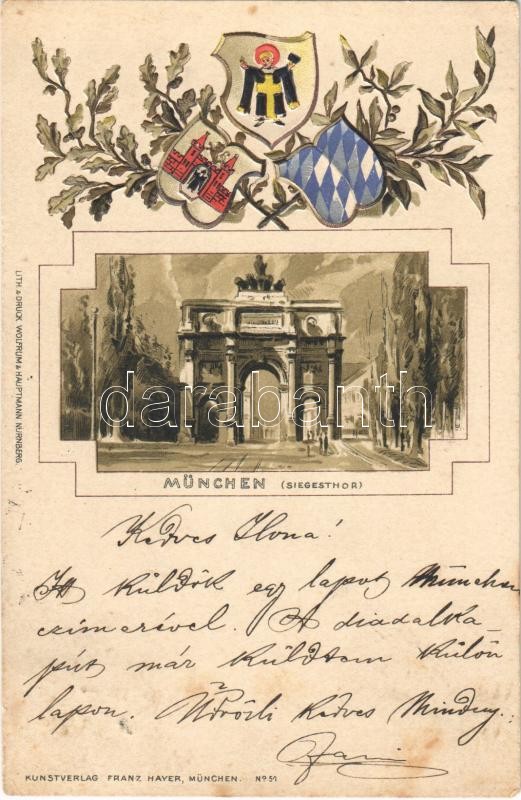 LITH. & DRUCK WOLFRUM & HAUPTMANN NÜRNBERG.
darabanth
MÜNCHEN (SIEGESTHOR)
Kedves Ilona!
Itt küldök egy lapot München
czimerével. A diadalka-
pút már küldtem külön
lapon. Üdvözli kedves Mind
KUNSTVERLAG FRANZ HAYER, MÜNCHEN. No 51